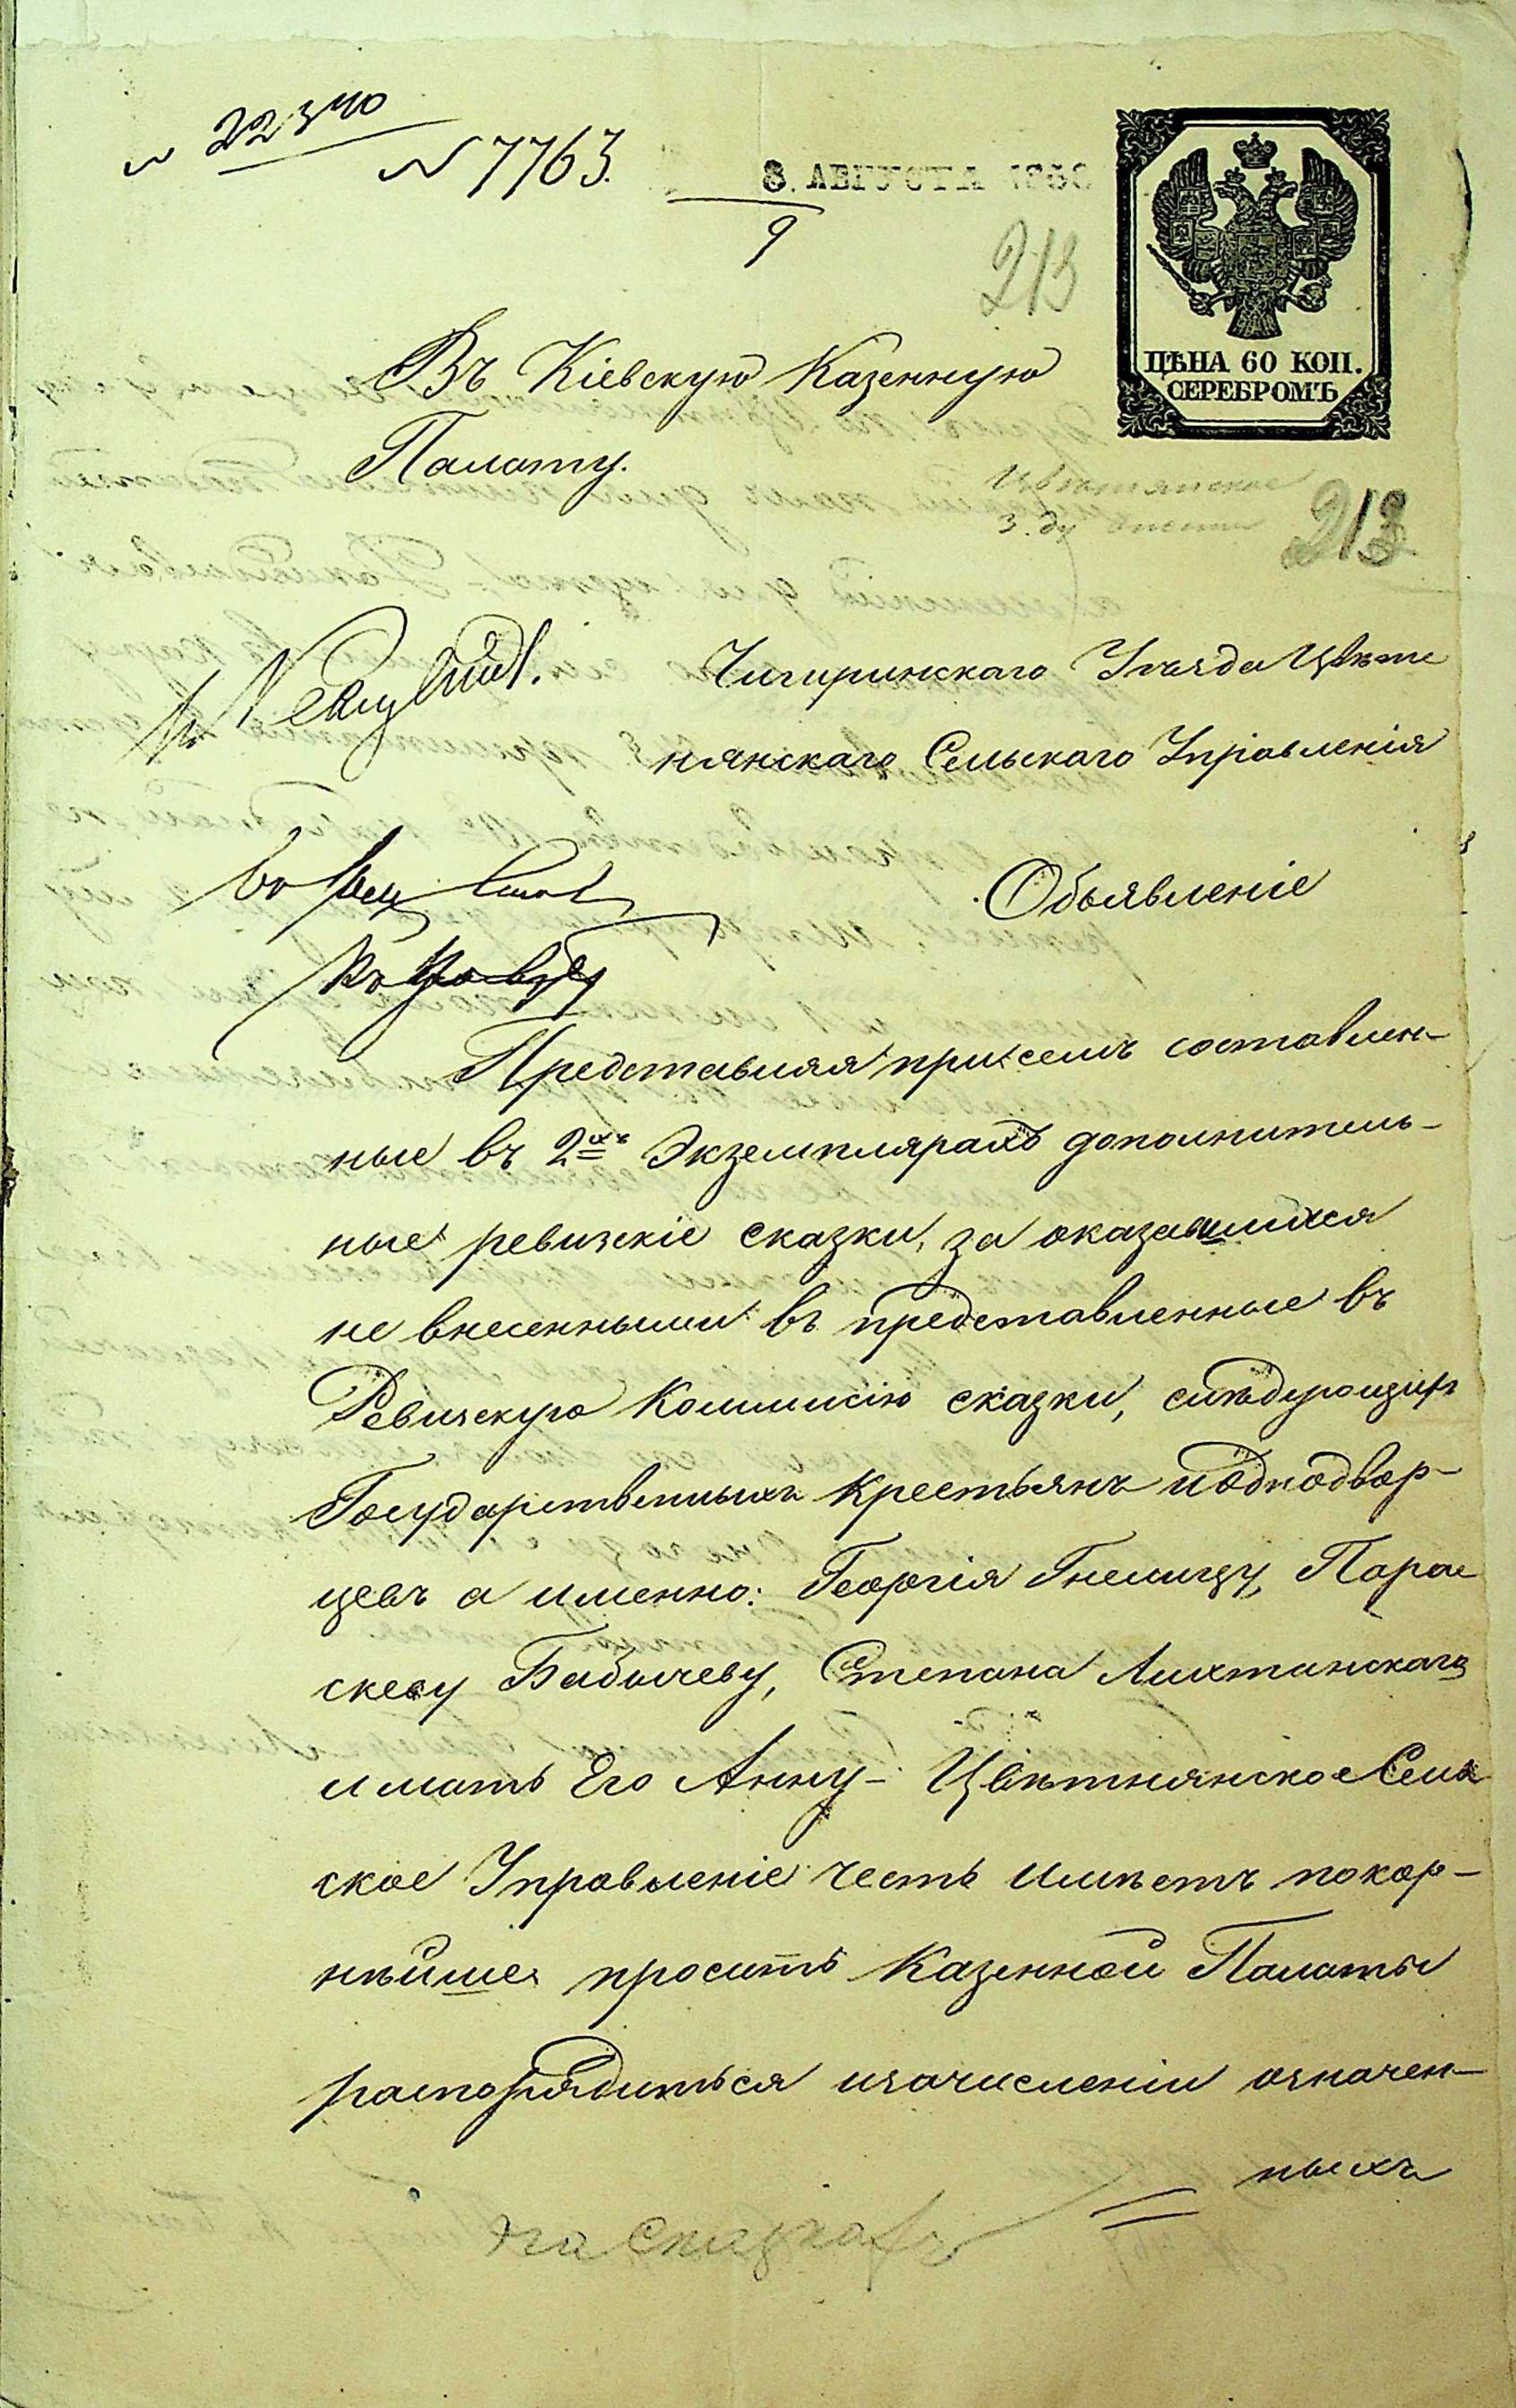 № 22340
№ 7763.
8. АВГУСТА
9
213
ЦѢНА 60 КОП.
СЕРЕБРОМЪ
Въ Кіевскую Казенную
Палату.
213
Чигиринскаго Уѣзда Цвѣт
нянскаго Сельскаго Управленія
Объявленіе
Представляя при семъ составлен-
ные въ 2хъ Экземплярахъ дополнитель-
ные ревизскіе сказки, за оказавшихся
не внесенными въ представленные въ
Ревизскую Коммисію сказки, слѣдующихъ
Государственныхъ крестьянъ и однодвор-
цевъ а именно: Георгія Гнелицу, Парас
скеву Бабичеву, Степана Лихтанскаго
и мать Его Анну - Цвѣтнянское Сель
ское Управленіе честь имѣетъ покор-
нѣйше просить Казенной Палаты
распорядиться изачисленіи означен-
ныхъ
на сказкахъ